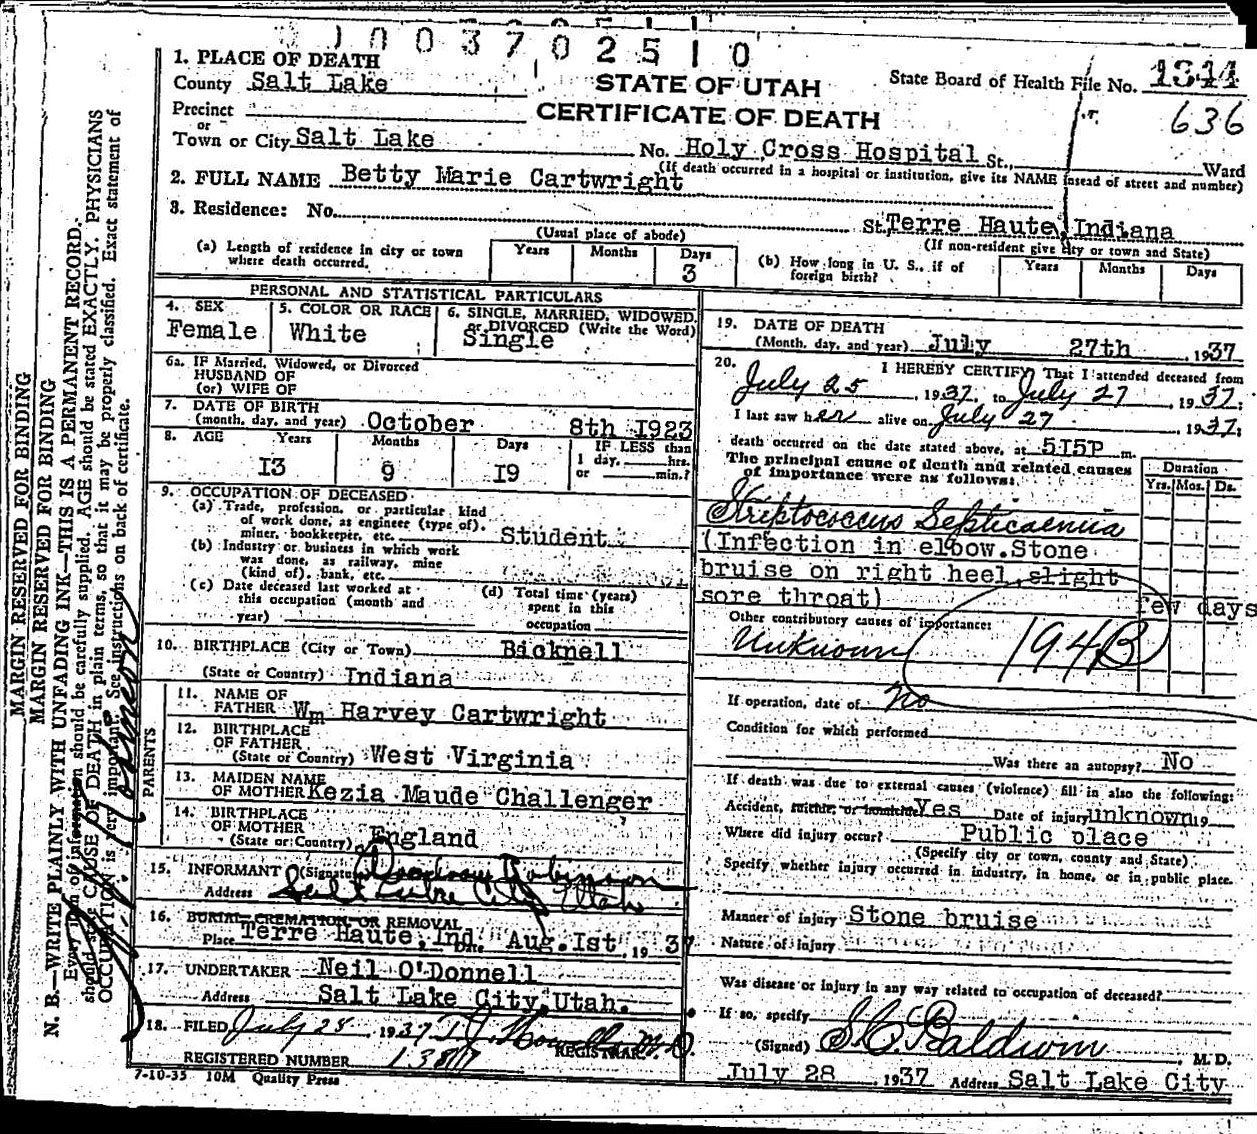 1003702510
1. PLACE OF DEATH
County Salt Lake
STATE OF UTAH
State Board of Health File No. 1344
Precinct
CERTIFICATE OF DEATH
636
or
Town or City Salt Lake No. Holy Cross Hospital St., Ward
(If death occurred in a hospital or institution, give its NAME instead of street and number)
2. FULL NAME Betty Marie Cartwright
3. Residence: No. St. Terre Haute, Indiana
(Usual place of abode)
(If non-resident give city or town and State)
(a) Length of residence in city or town where death occurred.
Years Months Days
3
(b) How long in U. S., if of foreign birth?
Years Months Days
PERSONAL AND STATISTICAL PARTICULARS
4. SEX
Female
5. COLOR OR RACE
White
6. SINGLE, MARRIED, WIDOWED, or DIVORCED (Write the Word)
Single
6a. IF Married, Widowed, or Divorced
HUSBAND OF
(or) WIFE OF
7. DATE OF BIRTH
(month, day, and year) October 8th 1923
8. AGE Years Months Days IF LESS than
13 9 19 1 day, hrs.
or min.?
9. OCCUPATION OF DECEASED
(a) Trade, profession, or particular kind
of work done, as engineer (type of),
miner, bookkeeper, etc. Student
(b) Industry or business in which work
was done, as railway, mine
(kind of), bank, etc.
(c) Date deceased last worked at
this occupation (month and
year)
(d) Total time (years)
spent in this
occupation
10. BIRTHPLACE (City or Town) Bicknell
(State or Country) Indiana
PARENTS
11. NAME OF
FATHER Wm Harvey Cartwright
12. BIRTHPLACE
OF FATHER
(State or Country) West Virginia
13. MAIDEN NAME
OF MOTHER Kezia Maude Challenger
14. BIRTHPLACE
OF MOTHER
(State or Country) England
15. INFORMANT (Signature) Robinson
Address Salt Lake City Utah
16. BURIAL, CREMATION, OR REMOVAL
Place Terre Haute, Ind. Date Aug. 1st, 1937
17. UNDERTAKER Neil O'Donnell
Address Salt Lake City, Utah.
18. FILED July 28 1937 T.J. Howells M.D.
REGISTRAR
REGISTERED NUMBER
7-10-35 10M Quality Press
19. DATE OF DEATH
(Month, day, and year) July 27th, 1937
20. I HEREBY CERTIFY, That I attended deceased from
July 25, 1937, to July 27, 1937;
I last saw her alive on July 27, 1937;
death occurred on the date stated above, at 515P m.
The principal cause of death and related causes
of importance were as follows:
Duration
Yrs. Mos. Ds.
Streptococcus Septicaemia
(Infection in elbow. Stone
bruise on right heel, slight
sore throat) few days
Other contributory causes of importance:
Unknown 194B
If operation, date of no
Condition for which performed
Was there an autopsy? No
If death was due to external causes (violence) fill in also the following:
Accident, suicide, or homicide Yes Date of injury unknown 19
Where did injury occur? Public place
(Specify city or town, county and State)
Specify whether injury occurred in industry, in home, or in public place.
Manner of injury Stone bruise
Nature of injury
Was disease or injury in any way related to occupation of deceased?
If so, specify
(Signed) S.C. Baldwin, M.D.
July 28, 1937 Address Salt Lake City
MARGIN RESERVED FOR BINDING
MARGIN RESERVED FOR BINDING
N. B.—WRITE PLAINLY WITH UNFADING INK—THIS IS A PERMANENT RECORD.
Every item of information should be carefully supplied. AGE should be stated EXACTLY. PHYSICIANS
should state CAUSE OF DEATH in plain terms, so that it may be properly classified. Exact statement of
OCCUPATION is very important. See instructions on back of certificate.